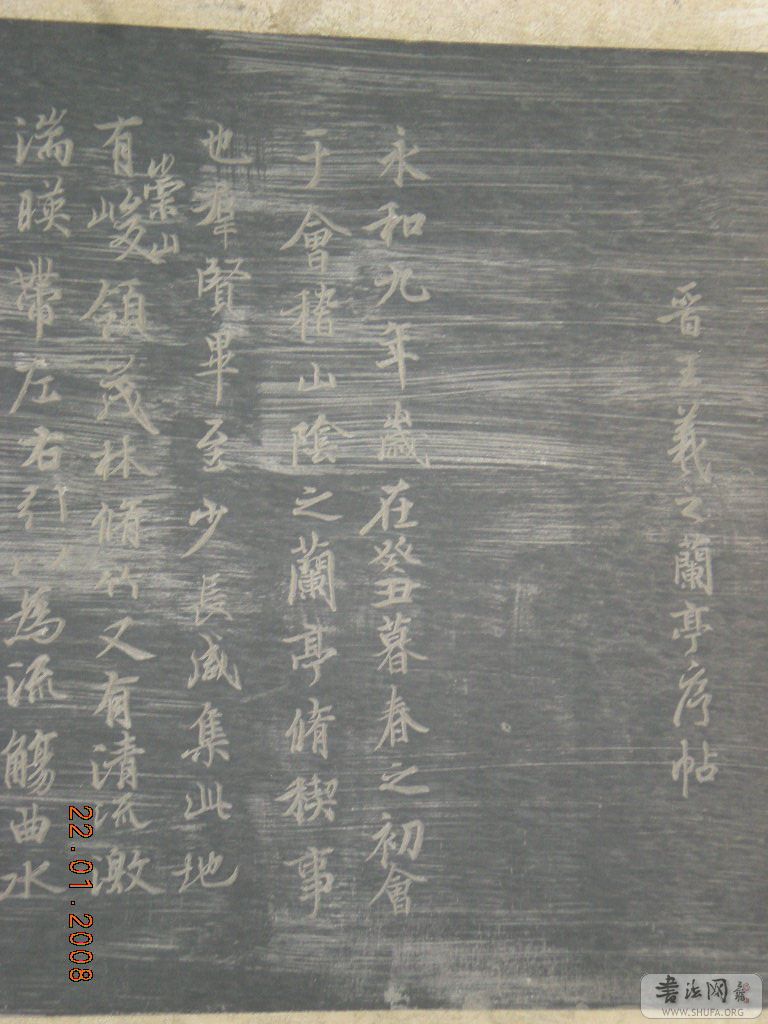 晉王羲之蘭亭序帖
永和九年歲在癸丑暮春之初會
于會稽山陰之蘭亭脩稧事
也羣賢畢至少長咸集此地
有崇山峻領茂林脩竹又有清流激
湍暎帶左右引以為流觴曲水
22.01.2008
書法网
WWW.SHUFA.ORG